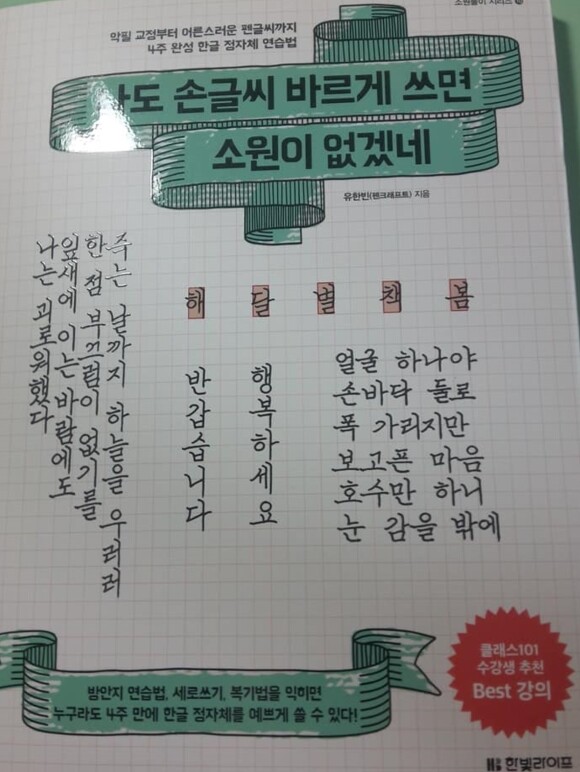 소원풀이 시리즈
악필 교정부터 어른스러운 펜글씨까지
4주 완성 한글 정자체 연습법
나도 손글씨 바르게 쓰면
소원이 없겠네
유한빈(펜크래프트) 지음
죽는 날까지 하늘을 우러러
한 점 부끄럼이 없기를
잎새에 이는 바람에도
나는 괴로워했다
해 달 별 책 봄
반갑습니다
행복하세요
얼굴 하나야
손바닥 둘로
폭 가리지만
보고픈 마음
호수만 하니
눈 감을 밖에
방안지 연습법, 세로쓰기, 복기법을 익히면
누구라도 4주 만에 한글 정자체를 예쁘게 쓸 수 있다!
클래스101
수강생 추천
Best 강의
HB 한빛라이프